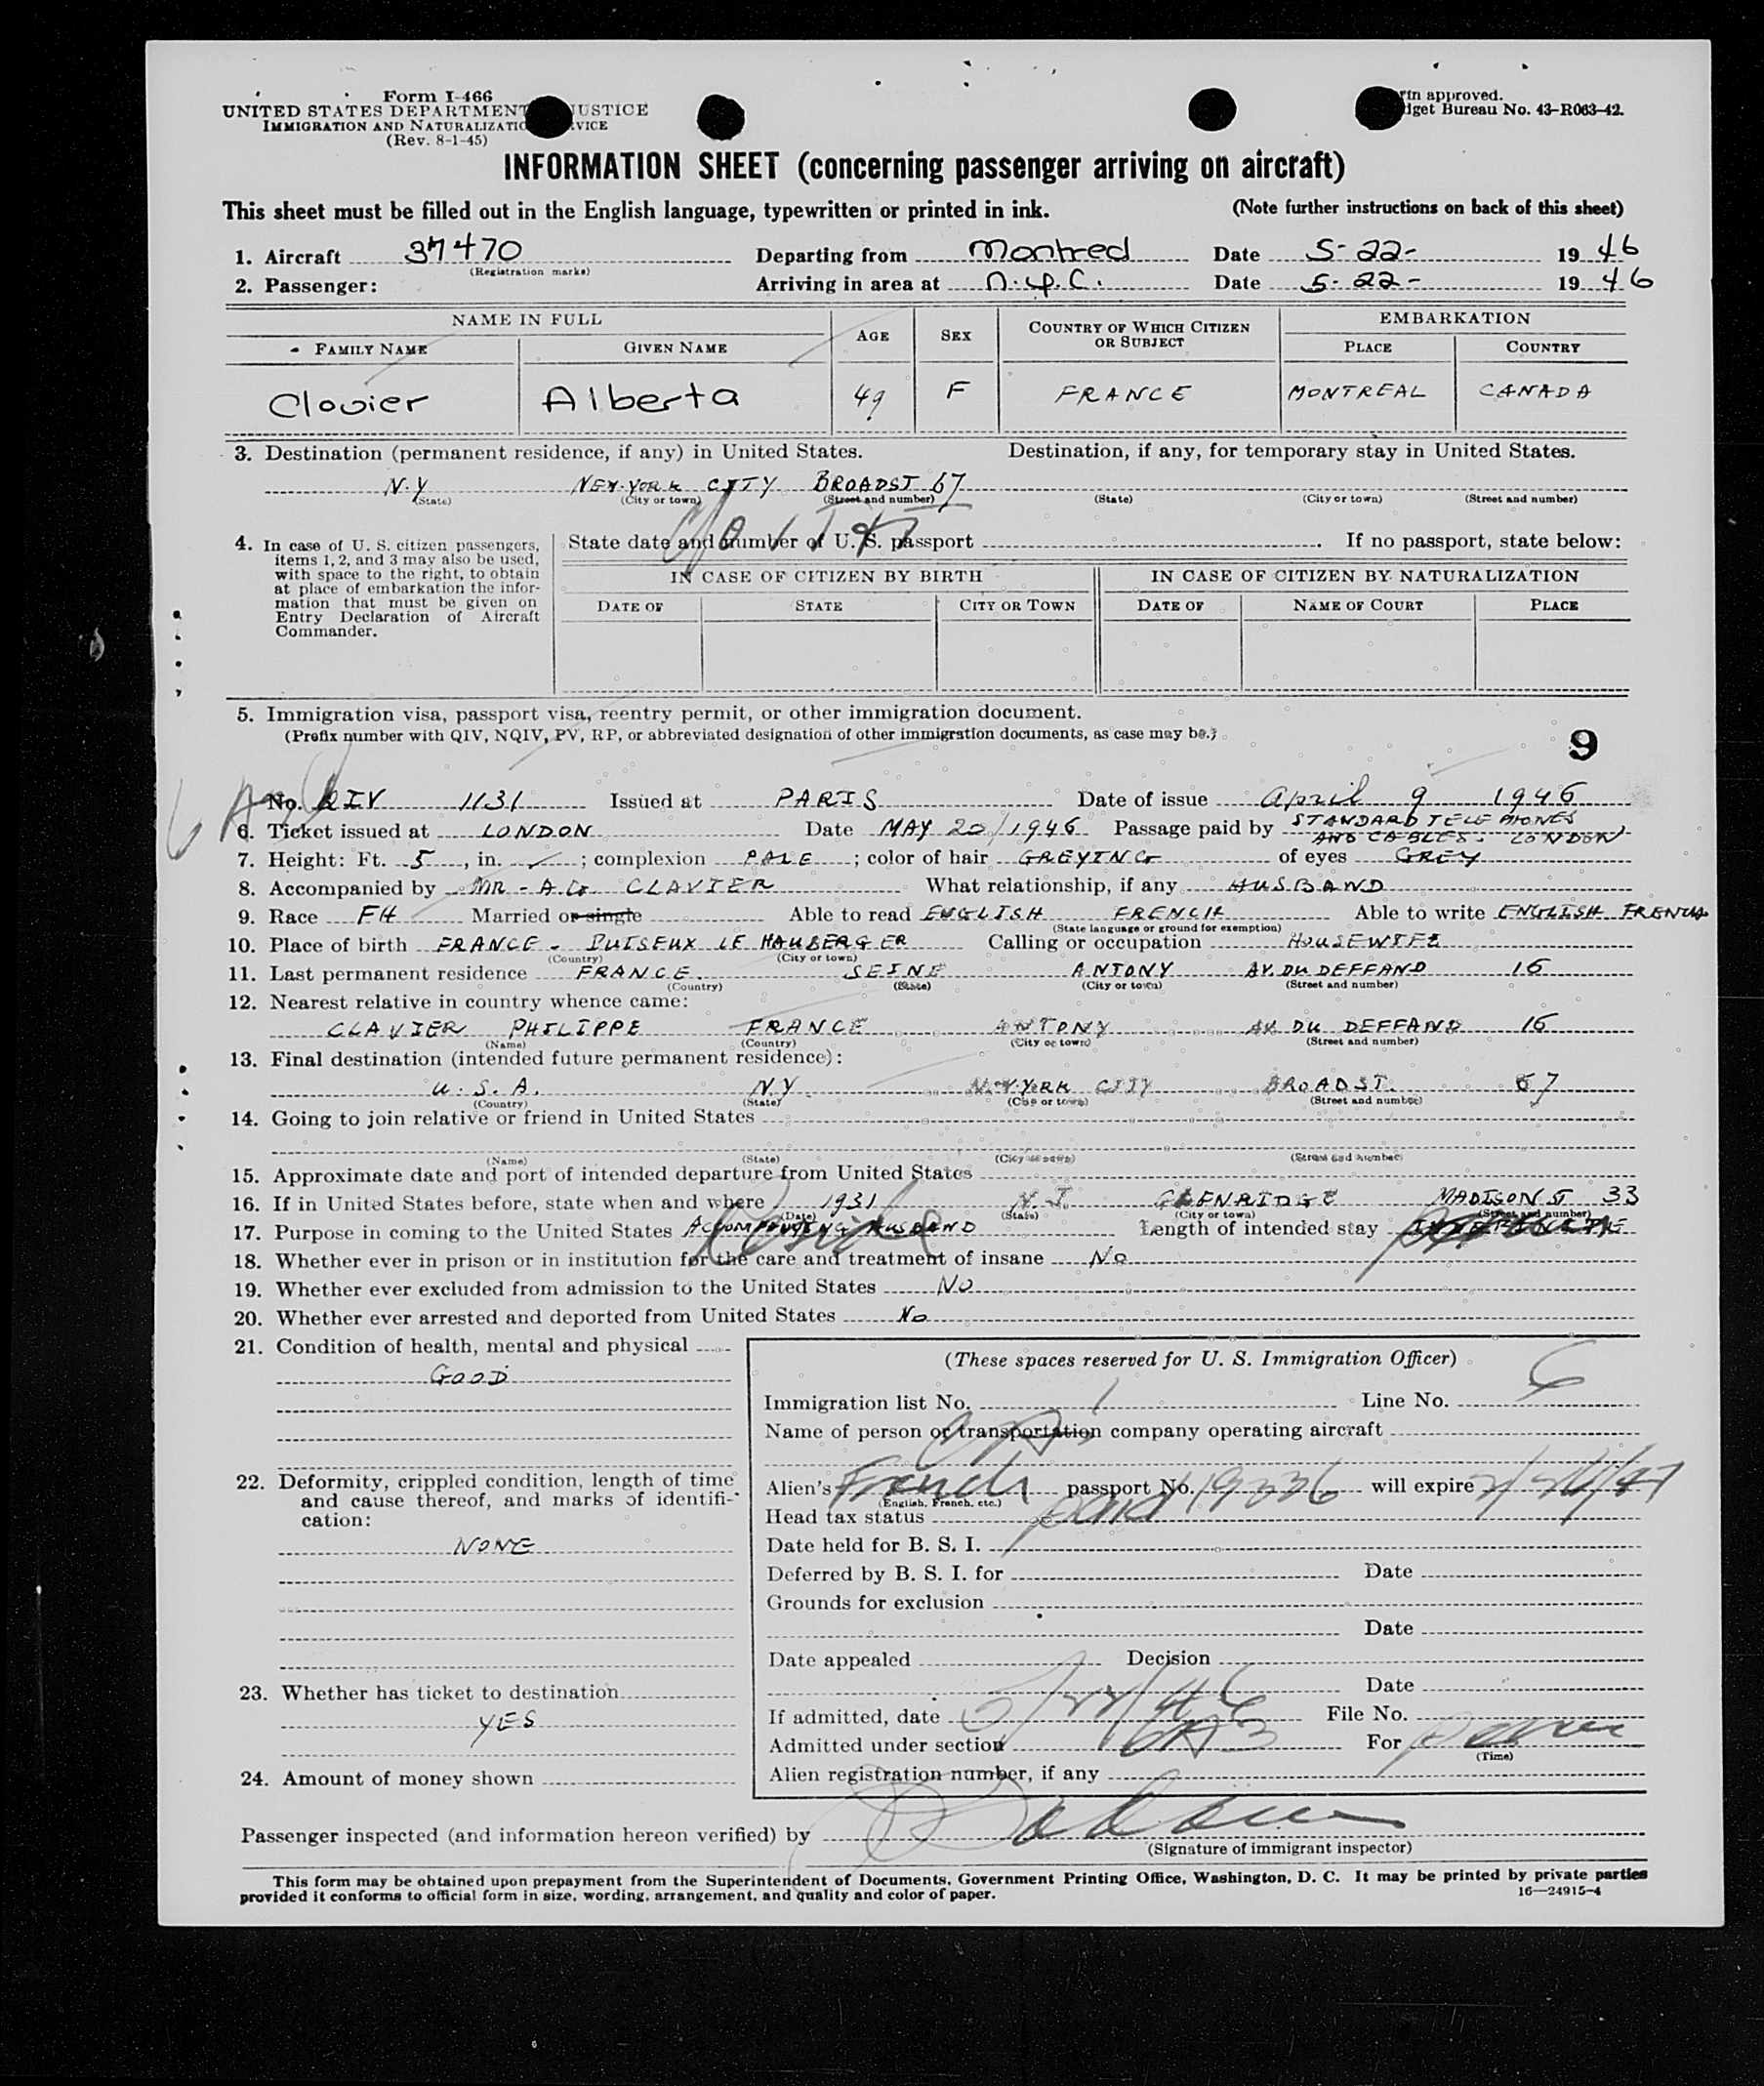 Form I-466
UNITED STATES DEPARTMENT JUSTICE
IMMIGRATION AND NATURALIZATIO VICE
(Rev. 8-1-45)
rm approved.
dget Bureau No. 43-R063-42.
INFORMATION SHEET (concerning passenger arriving on aircraft)
This sheet must be filled out in the English language, typewritten or printed in ink. (Note further instructions on back of this sheet)
1. Aircraft 37470 Departing from Montred Date 5-22- 1946
(Registration marks)
2. Passenger: Arriving in area at N.Y.C. Date 5-22- 1946
NAME IN FULL AGE SEX COUNTRY OF WHICH CITIZEN OR SUBJECT EMBARKATION
FAMILY NAME GIVEN NAME PLACE COUNTRY
Clovier Alberta 49 F FRANCE MONTREAL CANADA
3. Destination (permanent residence, if any) in United States. Destination, if any, for temporary stay in United States.
N.Y NEW-YORK CITY BROADST 67
(State) (City or town) (Street and number) (State) (City or town) (Street and number)
4. In case of U. S. citizen passengers, items 1, 2, and 3 may also be used, with space to the right, to obtain at place of embarkation the information that must be given on Entry Declaration of Aircraft Commander.
State date and number of U. S. passport . If no passport, state below:
IN CASE OF CITIZEN BY BIRTH IN CASE OF CITIZEN BY NATURALIZATION
DATE OF STATE CITY OR TOWN DATE OF NAME OF COURT PLACE
5. Immigration visa, passport visa, reentry permit, or other immigration document.
(Prefix number with QIV, NQIV, PV, RP, or abbreviated designation of other immigration documents, as case may be.)
9
No. QIV 1131 Issued at PARIS Date of issue April 9 1946
6. Ticket issued at LONDON Date MAY 20/1946 Passage paid by STANDARD TELEPHONES AND CABLES. LONDON
7. Height: Ft. 5, in. ; complexion PALE; color of hair GREYING of eyes GREY
8. Accompanied by MR - A.G. CLAVIER What relationship, if any HUSBAND
9. Race FH Married or single Able to read ENGLISH FRENCH Able to write ENGLISH FRENCH
(State language or ground for exemption)
10. Place of birth FRANCE - PUISEUX LE HAUBERGER Calling or occupation HOUSEWIFE
(Country) (City or town)
11. Last permanent residence FRANCE. SEINE ANTONY AV. DU DEFFAND 16
(Country) (State) (City or town) (Street and number)
12. Nearest relative in country whence came:
CLAVIER PHILIPPE FRANCE ANTONY AV. DU DEFFAND 16
(Name) (Country) (City or town) (Street and number)
13. Final destination (intended future permanent residence):
U.S.A. N.Y N.YORK CITY BROADST. 67
(Country) (State) (City or town) (Street and number)
14. Going to join relative or friend in United States
(Name) (State) (City or town) (Street and number)
15. Approximate date and port of intended departure from United States
16. If in United States before, state when and where 1931 N.J. GLENRIDGE MADISON ST 33
(Date) (State) (City or town) (Street and number)
17. Purpose in coming to the United States ACCOMPANYING HUSBAND Length of intended stay
18. Whether ever in prison or in institution for the care and treatment of insane No
19. Whether ever excluded from admission to the United States No
20. Whether ever arrested and deported from United States No
21. Condition of health, mental and physical
GOOD
22. Deformity, crippled condition, length of time and cause thereof, and marks of identification:
NONE
23. Whether has ticket to destination
YES
24. Amount of money shown
(These spaces reserved for U. S. Immigration Officer)
Immigration list No. 1 Line No. 6
Name of person or transportation company operating aircraft
Alien's French passport No. 19336 will expire
(English, French, etc.)
Head tax status paid
Date held for B. S. I.
Deferred by B. S. I. for Date
Grounds for exclusion
Date
Date appealed Decision
Date
If admitted, date 5/22/46 File No.
Admitted under section 6A3 For perm
(Time)
Alien registration number, if any
Passenger inspected (and information hereon verified) by
(Signature of immigrant inspector)
This form may be obtained upon prepayment from the Superintendent of Documents, Government Printing Office, Washington, D. C. It may be printed by private parties
provided it conforms to official form in size, wording, arrangement, and quality and color of paper. 16—24915-4